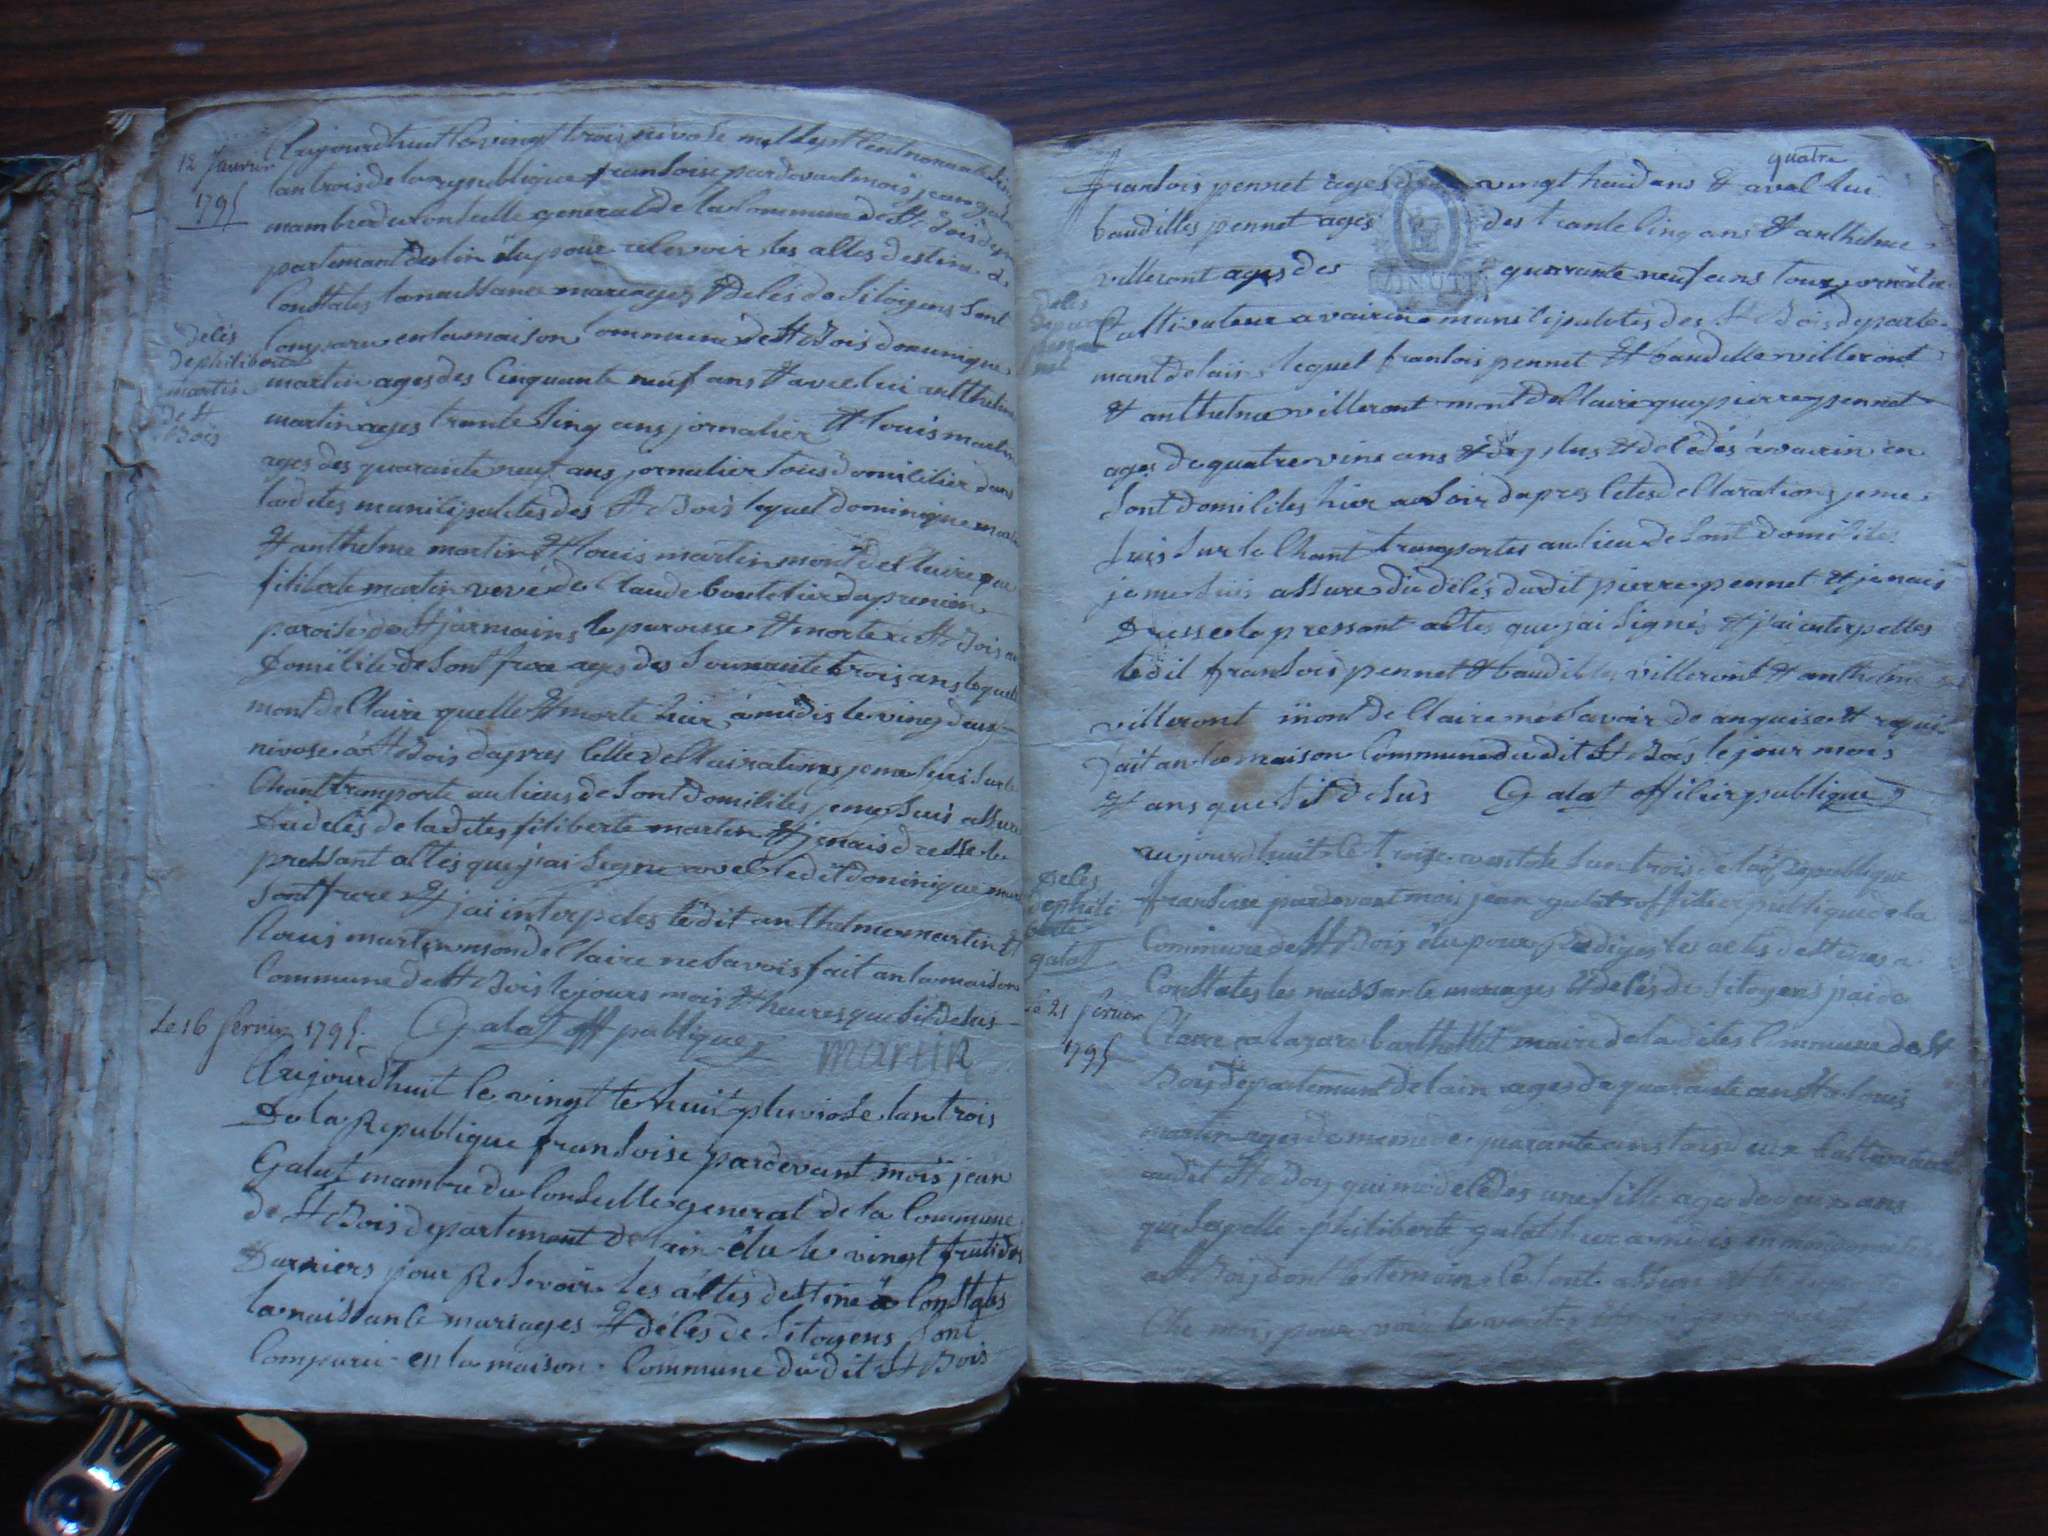 12 Janvier
1795
Aujourdhuit le vingt trois nivose mil sept cent nonante
lan trois de la republique fransoise pardevant mois jean galat
mambre du Conseille general de la Commune de St Bois de
partemant de lin élu pour resevoir les altes destine a
Constates la naissance mariages & delés de sitoyens sont
Comparu en la maison Commune de St Bois dominique
delés
de philiberte
martin
de St
Bois
martin ages des Cinquante neuf ans & avec lui anthelme
martin ages trante sinq ans jornalier & louis martin
ages des quarante neuf ans jornalier tous domicilier dans
ladites municipalites des St Bois lequel dominique martin
& anthelme martin & louis martin mont declaire que
filiberte martin veve de Claude boutelier da premien
paroise de St jarmains le parousse & morte a St Bois au
domicile de sont frere ages des souxante trois ans lequel
mont declaire quelle & morte hier à midis le vingt deux
nivose à St Bois dapres cette declairations je me suis sur le
Chant transporte au lieus de sont domiciles je me suis assure
du delés de ladites filiberte martin & jenais dresse le
pressant altes que jai signe avec ledit dominique martin
sont frere & jai interpeles ledit anthelme martin &
louis martin mon declaire ne savois fait an la maison
Commune de St Bois le jours mois & heures que sit desus
Galat off publique martin
Le 16 fevrier 1795
Aujourdhuit le vingt te huit pluviose lan trois
De la Republique fransoise pardevant mois jean
Galat mambre du Conseille general de la Commune
de St Bois departemant de lain élu le vingt frutidor
Darniers pour Resevoir les altes destiné à Constates
la naissance mariages & délés de Sitoyens Sont
Comparu en la maison Commune dudit St Bois
quatre
fransois pennet ages de vingt huid ans & avec lui
baudilles pennet ages des trante cinq ans & anthelme
villeront ages des quarante neuf ans tous
delés
Cultivateur a vairin municipalites des St Bois departe
mant de lais lequel fransois pennet & baudille villeront
& anthelme villeront mont declaire que pierre pennet
ages de quatre vins ans & dej plus & decédés à vairin en
sont domiciles hier au soir dapres cetes declarations je me
suis sur le Chant transportes au lieu de sont domicile
je me suis assure du délés dudit pierre pennet & jenais
Dresse le pressant altes que jai signés & jai interpelles
ledit fransois pennet & baudille villeront & anthelme
villeront mont declaire ne savoir de anquise & requi
fait an la maison Commune dudit St Bois le jour mois
& ans que sit desus Galat offisier publique
delés
de phili
berte
galat
aujourdhuit le trois ventose lan trois de la Republique
fransoise pardevant mois jean galat offisier publique de la
Commune de St Bois élu pour rediges les actes destines a
Constates les naissance mariages & delés de sitoyens
le 21 fevrier
1795
lazare barthellet maire de ladites Commune de St
Bois departemant de lain ages de quarante ans & a louis
martin ages de meme de quarante ans tous deux Cultivateur
audit St Bois qui mo delédes une fille agee de deux ans
que sapelle philiberte galat hier a midis en mon domicile
a St Bois dont les temoins se sont assure